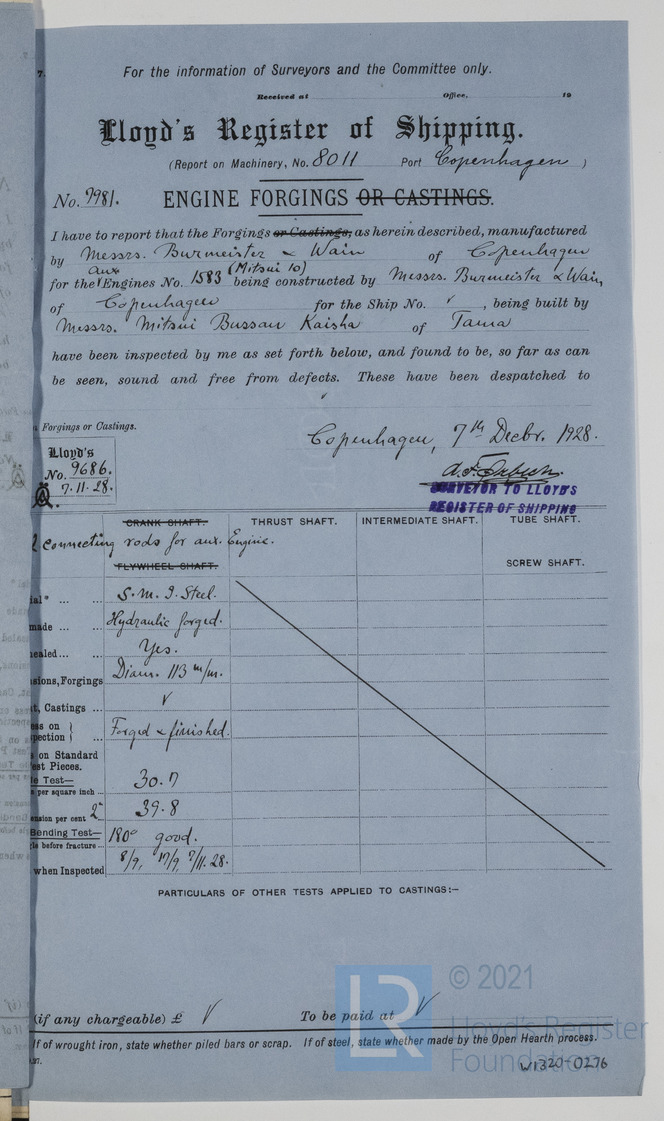 7.
For the information of Surveyors and the Committee only.
Received at Office, 19
Lloyd's Register of Shipping.
(Report on Machinery, No. 8011 Port Copenhagen )
No. 9981. ENGINE FORGINGS OR CASTINGS.
I have to report that the Forgings or Castings, as herein described, manufactured
by Messrs. Burmeister & Wain of Copenhagen
aux (Mitsui 10)
for the Engines No. 1583 being constructed by Messrs. Burmeister & Wain,
of Copenhagen for the Ship No. ✓, being built by
Messrs. Mitsui Bussan Kaisha of Tama
have been inspected by me as set forth below, and found to be, so far as can
be seen, sound and free from defects. These have been despatched to
✓
Forgings or Castings.
Copenhagen, 7th Decbr. 1928.
Lloyd's
No. 9686.
7.11.28.
SURVEYOR TO LLOYD'S
REGISTER OF SHIPPING
CRANK SHAFT. THRUST SHAFT. INTERMEDIATE SHAFT. TUBE SHAFT.
connecting rods for aux. Engine.
FLYWHEEL SHAFT. SCREW SHAFT.
ial* ... ... S.M.I. Steel.
made ... ... Hydraulic forged.
ealed ... ... Yes.
sions, Forgings Diam. 113 m/m.
t, Castings ... ✓
ess on
pection ... Forged & finished.
on Standard
est Pieces.
e Test—
s per square inch ... 30.7
ension per cent 2" 39.8
Bending Test— 180° good.
gle before fracture ...
when Inspected 8/9, 17/9, 7/11.28.
PARTICULARS OF OTHER TESTS APPLIED TO CASTINGS:—
(if any chargeable) £ ✓ To be paid at ✓
If of wrought iron, state whether piled bars or scrap. If of steel, state whether made by the Open Hearth process.
LR © 2021
Lloyd's Register
Foundation
W1320-0276